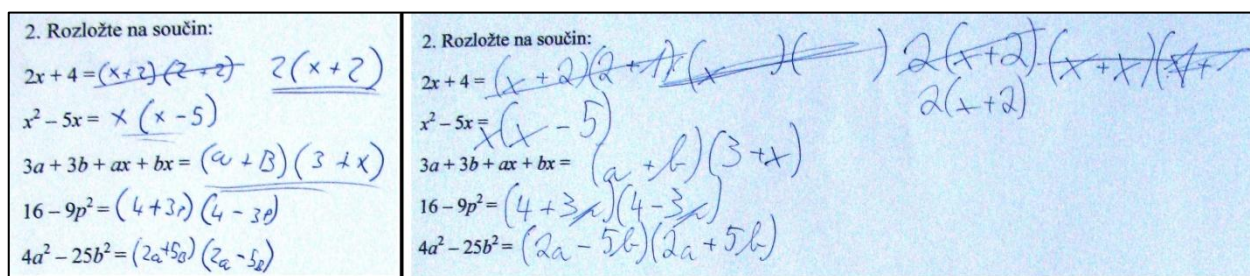 2. Rozložte na součin:
2x + 4 = (x+2)(2+2) 2(x+2)
x² – 5x = x(x-5)
3a + 3b + ax + bx = (a+B)(3+x)
16 – 9p² = (4+3p)(4-3p)
4a² – 25b² = (2a+5B)(2a-5B)
2. Rozložte na součin:
2x + 4 = (x+2)(2+ (x )( ) 2(x+2) (x+x)(
2(x+2)
x² – 5x = x(x-5)
3a + 3b + ax + bx = (a+b)(3+x)
16 – 9p² = (4+3p)(4-3p)
4a² – 25b² = (2a-5b)(2a+5b)